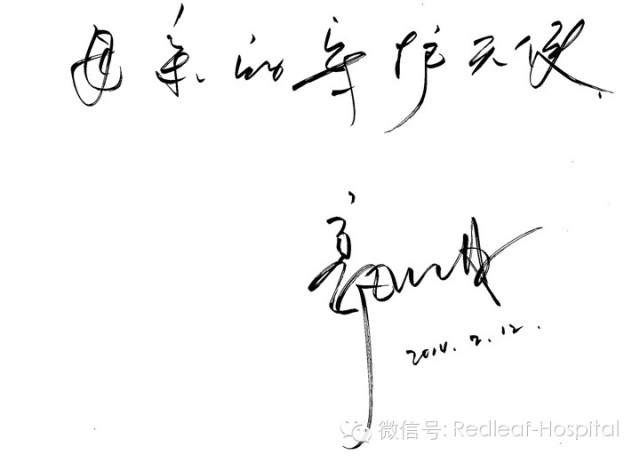 母亲的守护天使.
2014.2.12.
微信号: Redleaf-Hospital